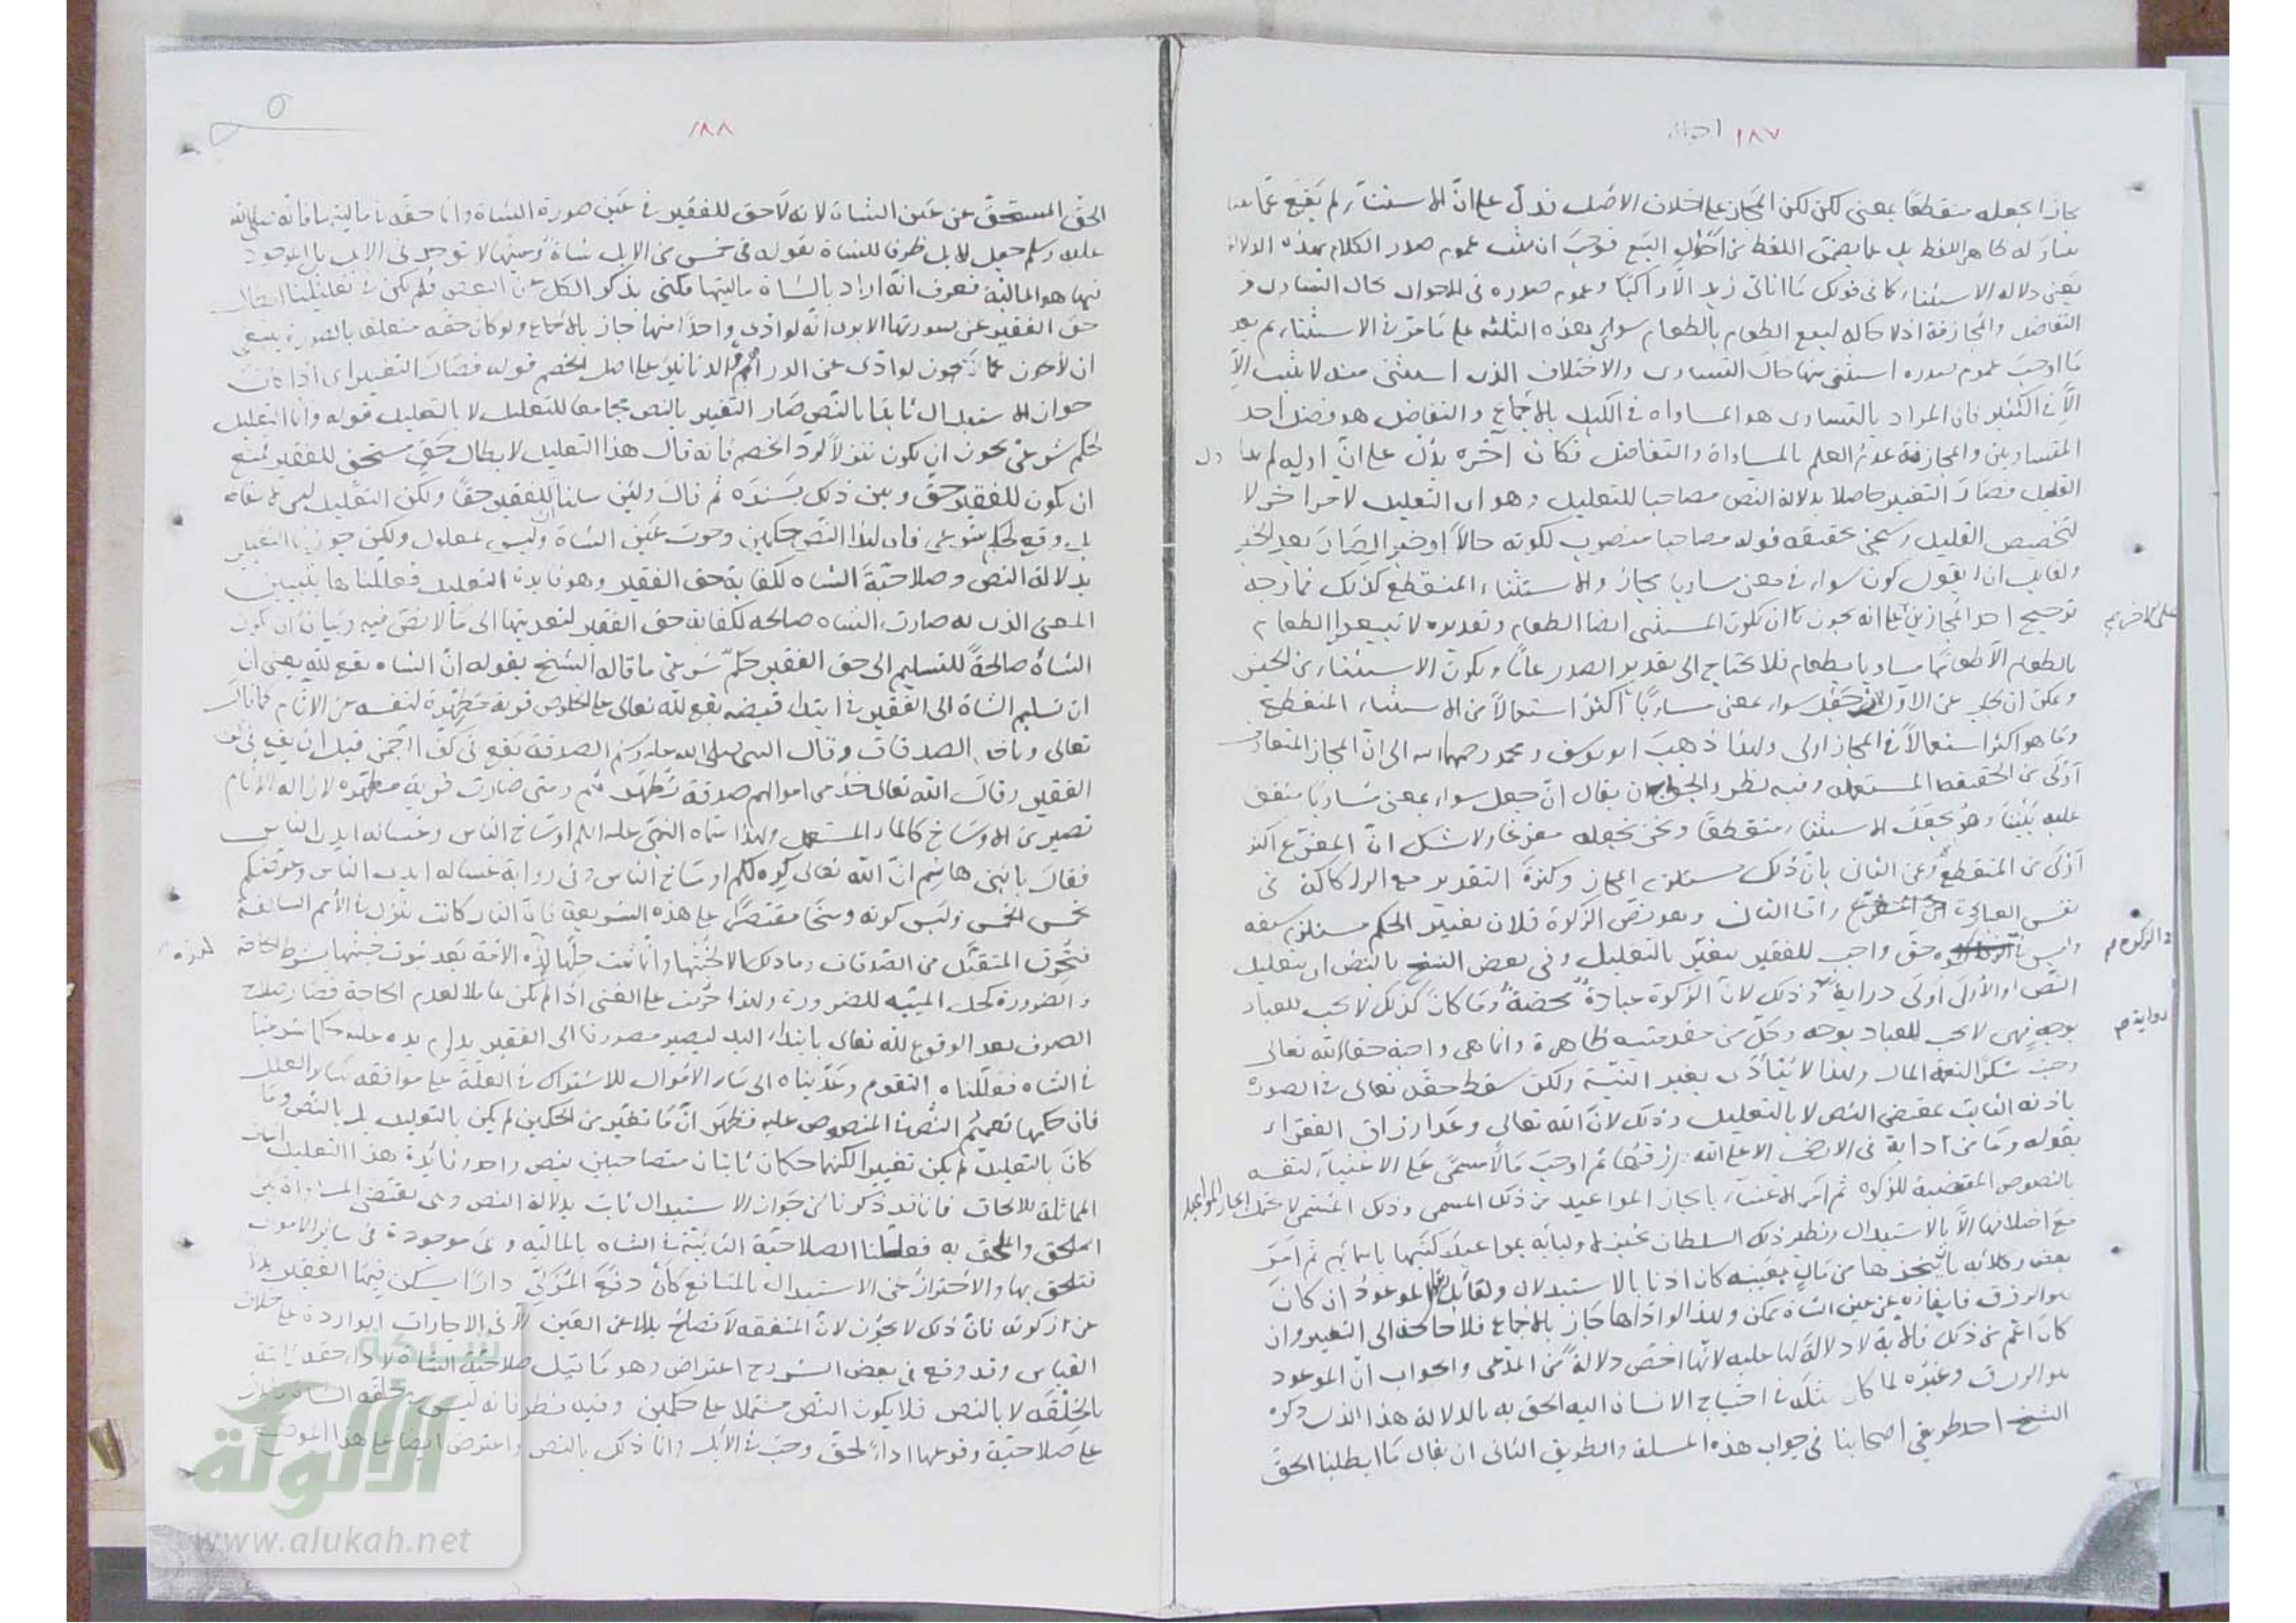 ١٨٧
مجازا بجعله منقطعا بمعنى لكن لكن المجاز على خلاف الاصل فدل على ان الاستثناء لم يقع عما
له ظاهر اللفظ بل عما يضمن اللفظ من احوال البيع فوجب ان يثبت عموم صدر الكلام بهذه الدلالة
يعنى دلالة الاستثناء كما فى قولك ما اتانى زيد الا راكبا وعموم صدره فى الاحوال حال التساوى و
التفاضل والمجازفة اذ لا حالة لبيع الطعام بالطعام سوى هذه الثلثة على ما مر فى الاستثناء ثم بعد
ما اوجب عموم صدره استثنى منها حال التساوى والاختلاف الذى استثنى منه لا يثبت الا
الا فى الكثير فان المراد بالتساوى هو المساواة فى الكيل بالاجماع والتفاضل هو فضل احد
المتساويين والمجازفة عدم العلم بالمساواة والتفاضل فكان اخره يدل على ان اوله لم
القليل فصار التغيير حاصلا بدلالة النص مصاحبا للتعليل وهو اى التعليل لامر اخر لا
لتخصيص القليل وسيجئ تحقيقه قوله مصاحبا منصوب لكونه حالا او خبرا لصار بعد الخبر
ولقائل ان يقول كون سواء فى معنى مساويا مجاز والاستثناء المنقطع كذلك فما وجه
ترجيح احد المجازين على انه يجوز ان يكون المستثنى ايضا الطعام وتقديره لا تبيعوا الطعام
بالطعام الا طعاما مساويا بطعام فلا يحتاج الى تقدير الصدر عاما ويكون الاستثناء من الجنس
ويمكن ان يجاب عن الاول ان جعل سواء بمعنى مساويا اكثر استعمالا من الاستثناء المنقطع
وما هو اكثر استعمالا فى المجاز اولى ولهذا ذهب ابو يوسف ومحمد رحمهما الله الى ان المجاز المتعارف
اولى من الحقيقة المستعملة وفيه نظر والجواب ان يقال ان جعل سواء بمعنى مساويا متفق
عليه بيننا وهو يجعل الاستثناء منقطعا ونحن نجعله مفرغا ولا شك ان المفرغ اكثر
اولى من المنقطع وعن الثانى بان ذلك مستلزم المجاز وكثرة التقدير مع الولا كاكن فى
نفس العبارة واما الثانى وهو نص الزكوة فلان تغيير الحكم مستلزم سبقه
وليس حق واجب للفقير يتغير بالتعليل وفى بعض النسخ بالنص اى بتعليل
النص والاولى اولى دراية وذلك لان الزكوة عبادة محضة وما كان كذلك لا يجب للعباد
بوجه فهى لا تجب للعباد بوجه وكل من مقدمتيه ظاهرة وانما هى واجبة حقا لله تعالى
وجبت شكرا لنعمة المال ولهذا لا يتأدى بغير النية ولكن سقط حقه تعالى فى الصورة
باذنه الثابت بمقتضى النص لا بالتعليل وذلك لان الله تعالى وعد ارزاق الفقراء
بقوله وما من دابة فى الارض الا على الله رزقها ثم اوجب مالا مسمى على الاغنياء لنفسه
بالنصوص المقتضية للزكوة ثم امر الاغنياء بانجاز المواعيد من ذلك المسمى وذلك المسمى لا يحتمل انجاز المواعيد
مع اختلافها الا بالاستبدال ونظير ذلك السلطان يجيز اوليائه بمواعيد كتبها باسمائهم ثم امر
بعض وكلائه بان ينجزها من مال بعينه كان اذنا بالاستبدال ولقائل الموعود ان كان
هو الرزق فايفاؤه من عين الشاة ممكن ولهذا لو اداها جاز بالاجماع فلا حاجة الى التغيير وان
كان اعم من ذلك فالاية لا دلالة لها عليه لانها اخص دلالة من المدعى والجواب ان الموعود
هو الرزق وغيره لما كان مثله فى احتياج الانسان اليه الحق به بالدلالة هذا الذى ذكره
الشيخ احد طريقى اصحابنا فى جواب هذه المسئلة والطريق الثانى ان يقال ما ابطلنا الحق
على الاخر
الزكوة
رواية
١٨٨
الحق المستحق عن عين الشاة لانه لا حق للفقير فى عين صورة الشاة وانما حقه فى ماليتها فانه صلى الله
عليه وسلم جعل الابل ظرفا للشاة بقوله فى خمس من الابل شاة وعينها لا توجد فى الابل بل الموجود
فيها هو المالية فعرف انه اراد بالشاة ماليتها فكنى بذكر الكل عن البعض فلم يكن فى تعليلنا ابطال
حق الفقير عن صورتها الا يرى انه لو ادى واحدا منها جاز بالاجماع ولو كان حقه متعلقا بالصورة ينبغى
ان لا يجوز كما لا يجوز لو ادى عن الدراهم الدنانير على اصل الخصم قوله فصار التغيير اى اذا كان
جواز الاستبدال ثابتا بالنص صار التغيير بالنص مجامعا للتعليل لا بالتعليل قوله وانما التعليل
لحكم شرعى يجوز ان يكون تنزلا لرد الخصم فانه قال هذا التعليل لابطال حق مستحق للفقير فمنع
ان يكون للفقير حق وبين ذلك بسنده ثم قال ولئن سلمنا للفقير حقا ولكن التعليل ليس
بل وقع لحكم شرعى فان لهذا النص حكمين وجوب عين الشاة وليس بمعلول ولكن جوزنا التغيير
بدلالة النص وصلاحية الشاة لكفاية حق الفقير وهو فايدة التعليل فعللناها بتبيين
المعنى الذى به صارت الشاة صالحة لكفاية حق الفقير لتعديتها الى ما لا نص فيه وبيان ان كون
الشاة صالحة للتسليم الى حق الفقير حكم شرعى ما قاله الشيخ بقوله ان الشاة تقع لله يعنى ان
ان تسليم الشاة الى الفقير فى ابتداء قبضه يقع لله تعالى على الخلوص قربة مطهرة لنفسه من الاثام كما قال
تعالى وياخذ الصدقات وقال النبى صلى الله عليه وسلم الصدقة تقع فى كف الرحمن قبل ان يقع فى كف
الفقير وقال الله تعالى خذ من اموالهم صدقة تطهرهم ومتى صارت قربة مطهرة لازالة الاثام
تصير من الاوساخ كالماء المستعمل ولهذا سماه النبى عليه السلام اوساخ الناس وغسالة ايدى الناس
فقال يا بنى هاشم ان الله تعالى كره لكم اوساخ الناس وفى رواية غسالة ايدى الناس وعوضكم
بخمس الخمس وليس كونه وسخا مقتصرا على هذه الشريعة فان النار كانت تنزل فى الامم السالفة
فتحرق المتقبل من الصدقات وما ذلك الا لخبثها وانما ثبت حلها لهذه الامة بعد ثبوت خبثها بشرط الحاجة
والضرورة كحل الميتة للضرورة ولهذا حرمت على الغنى اذا لم يكن عاملا لعدم الحاجة فصار صلاح
الصرف بعد الوقوع لله تعالى بابتداء اليد ليصير مصروفا الى الفقير بدوام يده عليه حكما شرعيا
فى الشاة فعللناه بالتقوم وعديناه الى سائر الاموال للاشتراك فى العلة على موافقة سائر العلل
فان حكمها تعميم النص المنصوص عليه فظهر ان ما تغير من الحكمين لم يكن بالتعليل بل بالنص وما
كان بالتعليل لم يكن تغييرا لكنهما حكمان ثابتان متصاحبين بنص واحد وفائدة هذا التعليل
المماثلة للالحاق فانا قد ذكرنا ان جواز الاستبدال ثابت بدلالة النص وهى تقتضى المساواة بين
الملحق والملحق به فعللنا الصلاحية الثابتة فى الشاة بالمالية وهى موجودة فى سائر الاموال
فتلحق بها والاحتراز عن الاستبدال بالمنافع كأن دفع المزكى دارا يسكن فيها الفقير بدلا
عن زكوته فان ذلك لا يجوز لان المنفعة لا تصلح بدلا عن العين الا فى الاجارات الواردة على خلاف
القياس وقد وقع فى بعض الشروح اعتراض وهو ما قيل صلاحية الشاة لاداء حقه ثابتة
بالخلقة لا بالنص فلا يكون النص مشتملا على حكمين وفيه نظر فانه ليس بخلقة الشاة
على صلاحية وقوعها اداء لحق وجب فى الابل وانما ذلك بالنص واعترض ايضا على هذا الموضع
شبكة
الألوكة
www.alukah.net